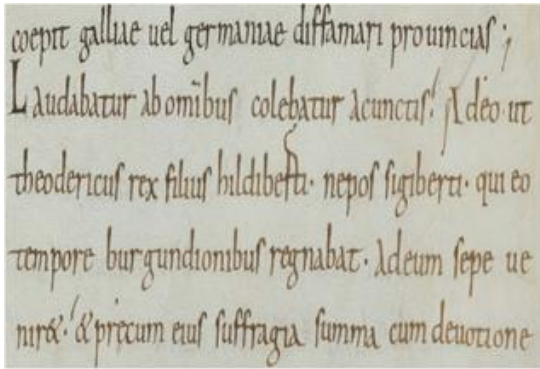 coepit galliae uel germaniae diffamari prouincias;
Laudabatur ab omībus colebatur acunctis. Adeo ut
theodericus rex filius hildiberti. nepos sigiberti. qui eo
tempore burgundionibus regnabat. Adeum sepe ue
nir&. & pręcum eius suffragia summa cum deuotione